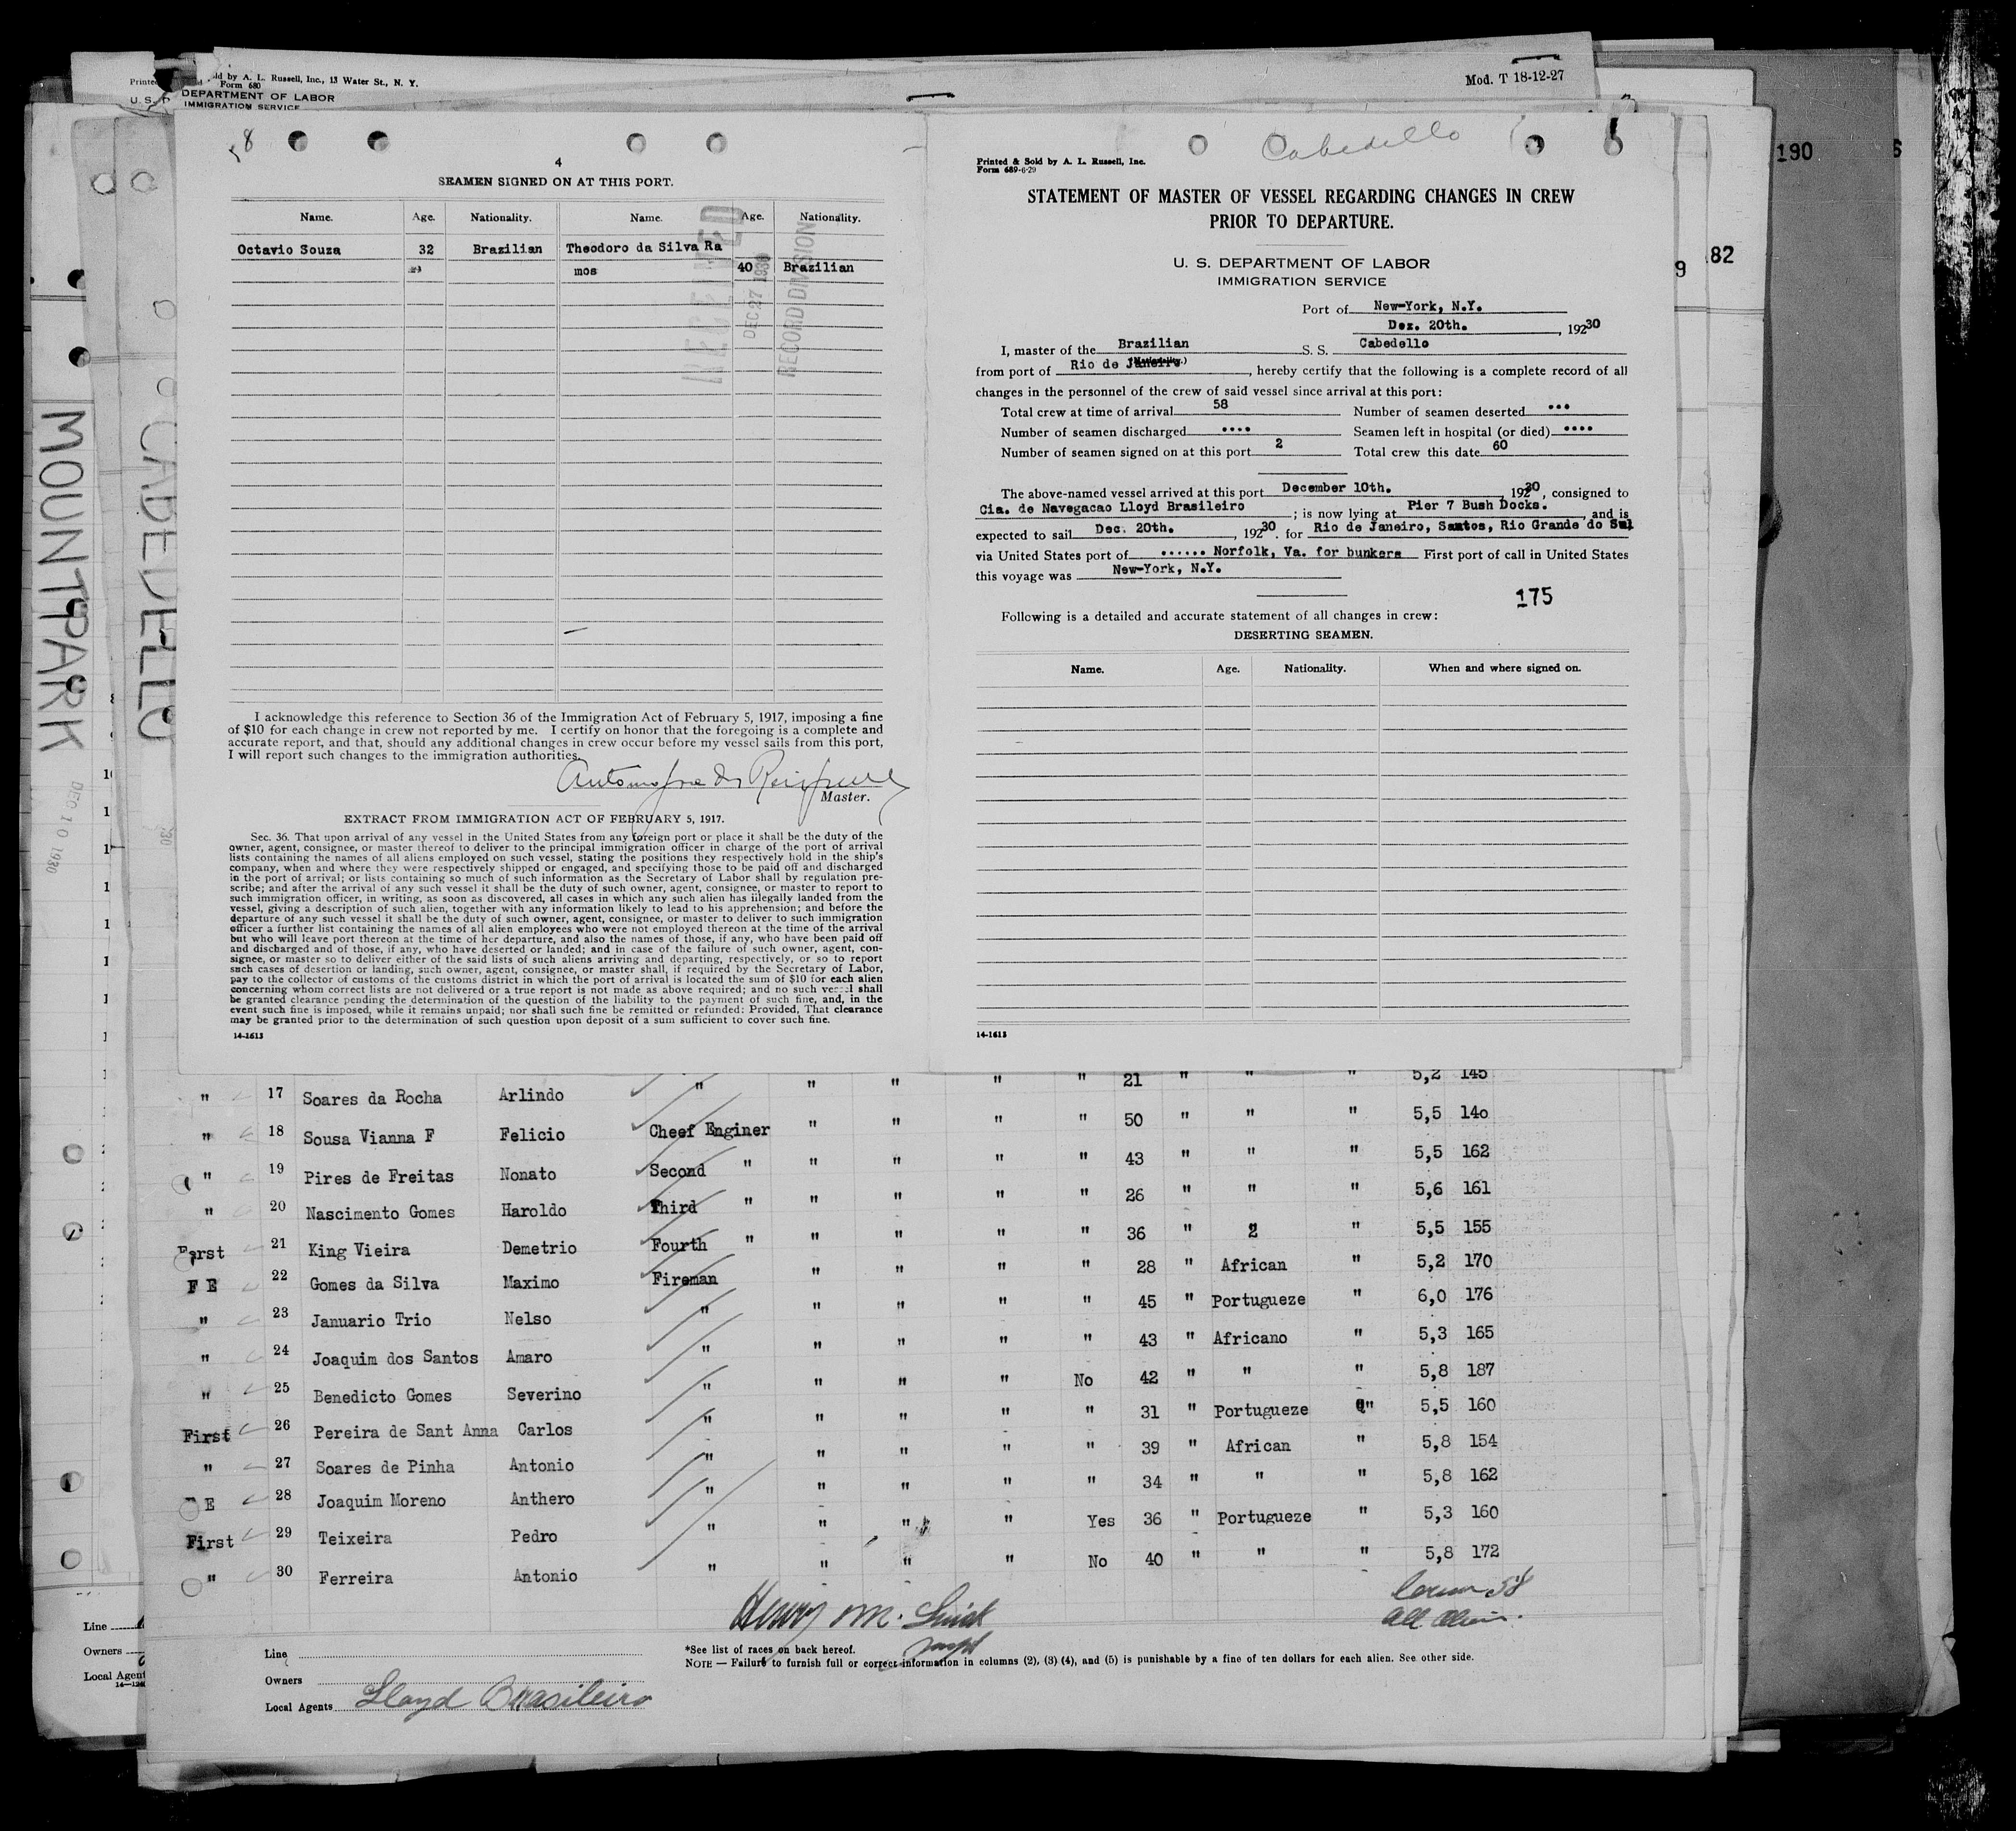 Printed
Sold by A. L. Russell, Inc., 13 Water St., N. Y.
Form 680
U. S. DEPARTMENT OF LABOR
IMMIGRATION SERVICE
Mod. T 18-12-27
190
6
82
9
MOUNTPARK
CABEDELLO
DEC 10 1930
8
4
SEAMEN SIGNED ON AT THIS PORT.
Name. Age. Nationality. Name. Age. Nationality.
Octavio Souza 32 Brazilian Theodoro da Silva Ra
mos 40 Brazilian
RECEIVED
DEC 27 1930
RECORD DIVISION
I acknowledge this reference to Section 36 of the Immigration Act of February 5, 1917, imposing a fine
of $10 for each change in crew not reported by me. I certify on honor that the foregoing is a complete and
accurate report, and that, should any additional changes in crew occur before my vessel sails from this port,
I will report such changes to the immigration authorities.
Master.
EXTRACT FROM IMMIGRATION ACT OF FEBRUARY 5, 1917.
Sec. 36. That upon arrival of any vessel in the United States from any foreign port or place it shall be the duty of the
owner, agent, consignee, or master thereof to deliver to the principal immigration officer in charge of the port of arrival
lists containing the names of all aliens employed on such vessel, stating the positions they respectively hold in the ship's
company, when and where they were respectively shipped or engaged, and specifying those to be paid off and discharged
in the port of arrival; or lists containing so much of such information as the Secretary of Labor shall by regulation pre-
scribe; and after the arrival of any such vessel it shall be the duty of such owner, agent, consignee, or master to report to
such immigration officer, in writing, as soon as discovered, all cases in which any such alien has illegally landed from the
vessel, giving a description of such alien, together with any information likely to lead to his apprehension; and before the
departure of any such vessel it shall be the duty of such owner, agent, consignee, or master to deliver to such immigration
officer a further list containing the names of all alien employees who were not employed thereon at the time of the arrival
but who will leave port thereon at the time of her departure, and also the names of those, if any, who have been paid off
and discharged and of those, if any, who have deserted or landed; and in case of the failure of such owner, agent, con-
signee, or master so to deliver either of the said lists of such aliens arriving and departing, respectively, or so to report
such cases of desertion or landing, such owner, agent, consignee, or master shall, if required by the Secretary of Labor,
pay to the collector of customs of the customs district in which the port of arrival is located the sum of $10 for each alien
concerning whom correct lists are not delivered or a true report is not made as above required; and no such vessel shall
be granted clearance pending the determination of the question of the liability to the payment of such fine, and, in the
event such fine is imposed, while it remains unpaid; nor shall such fine be remitted or refunded: Provided, That clearance
may be granted prior to the determination of such question upon deposit of a sum sufficient to cover such fine.
14-1613
Cabedello
Printed & Sold by A. L. Russell, Inc.
Form 689-6-29
STATEMENT OF MASTER OF VESSEL REGARDING CHANGES IN CREW
PRIOR TO DEPARTURE.
U. S. DEPARTMENT OF LABOR
IMMIGRATION SERVICE
Port of New-York, N.Y.
Dez. 20th. , 19230
I, master of the Brazilian S. S. Cabedello
(Nationality.)
from port of Rio de Janeiro , hereby certify that the following is a complete record of all
changes in the personnel of the crew of said vessel since arrival at this port:
Total crew at time of arrival 58 Number of seamen deserted ...
Number of seamen discharged .... Seamen left in hospital (or died) ....
Number of seamen signed on at this port 2 Total crew this date 60
The above-named vessel arrived at this port December 10th. , 19230, consigned to
Cia. de Navegacao Lloyd Brasileiro ; is now lying at Pier 7 Bush Docks. , and is
expected to sail Dec. 20th. , 19230. for Rio de Janeiro, Santos, Rio Grande do Sul
via United States port of ...... Norfolk, Va. for bunkers First port of call in United States
this voyage was New-York, N.Y.
175
Following is a detailed and accurate statement of all changes in crew:
DESERTING SEAMEN.
Name. Age. Nationality. When and where signed on.
14-1613
" 17 Soares da Rocha Arlindo " " " " " 21 " " " 5,2 145
" 18 Sousa Vianna F Felicio Cheef Enginer " " " " 50 " " " 5,5 140
" 19 Pires de Freitas Nonato Second " " " " " 43 " " " 5,5 162
" 20 Nascimento Gomes Haroldo Third " " " " " 26 " " " 5,6 161
First 21 King Vieira Demetrio Fourth " " " " " 36 " 2 " 5,5 155
F E 22 Gomes da Silva Maximo Fireman " " " " 28 " African " 5,2 170
" 23 Januario Trio Nelso " " " " " 45 " Portugueze " 6,0 176
" 24 Joaquim dos Santos Amaro " " " " " 43 " Africano " 5,3 165
" 25 Benedicto Gomes Severino " " " " No 42 " " " 5,8 187
First 26 Pereira de Sant Anna Carlos " " " " " 31 " Portugueze " 5,5 160
" 27 Soares de Pinha Antonio " " " " " 39 " African " 5,8 154
E 28 Joaquim Moreno Anthero " " " " " 34 " " " 5,8 162
First 29 Teixeira Pedro " " " " Yes 36 " Portugueze " 5,3 160
" 30 Ferreira Antonio " " " " No 40 " " " 5,8 172
Henry M.
58
All
*See list of races on back hereof.
NOTE — Failure to furnish full or correct information in columns (2), (3) (4), and (5) is punishable by a fine of ten dollars for each alien. See other side.
Line
Owners
Local Agents Lloyd Brasileiro
Line
Owners
Local Agent